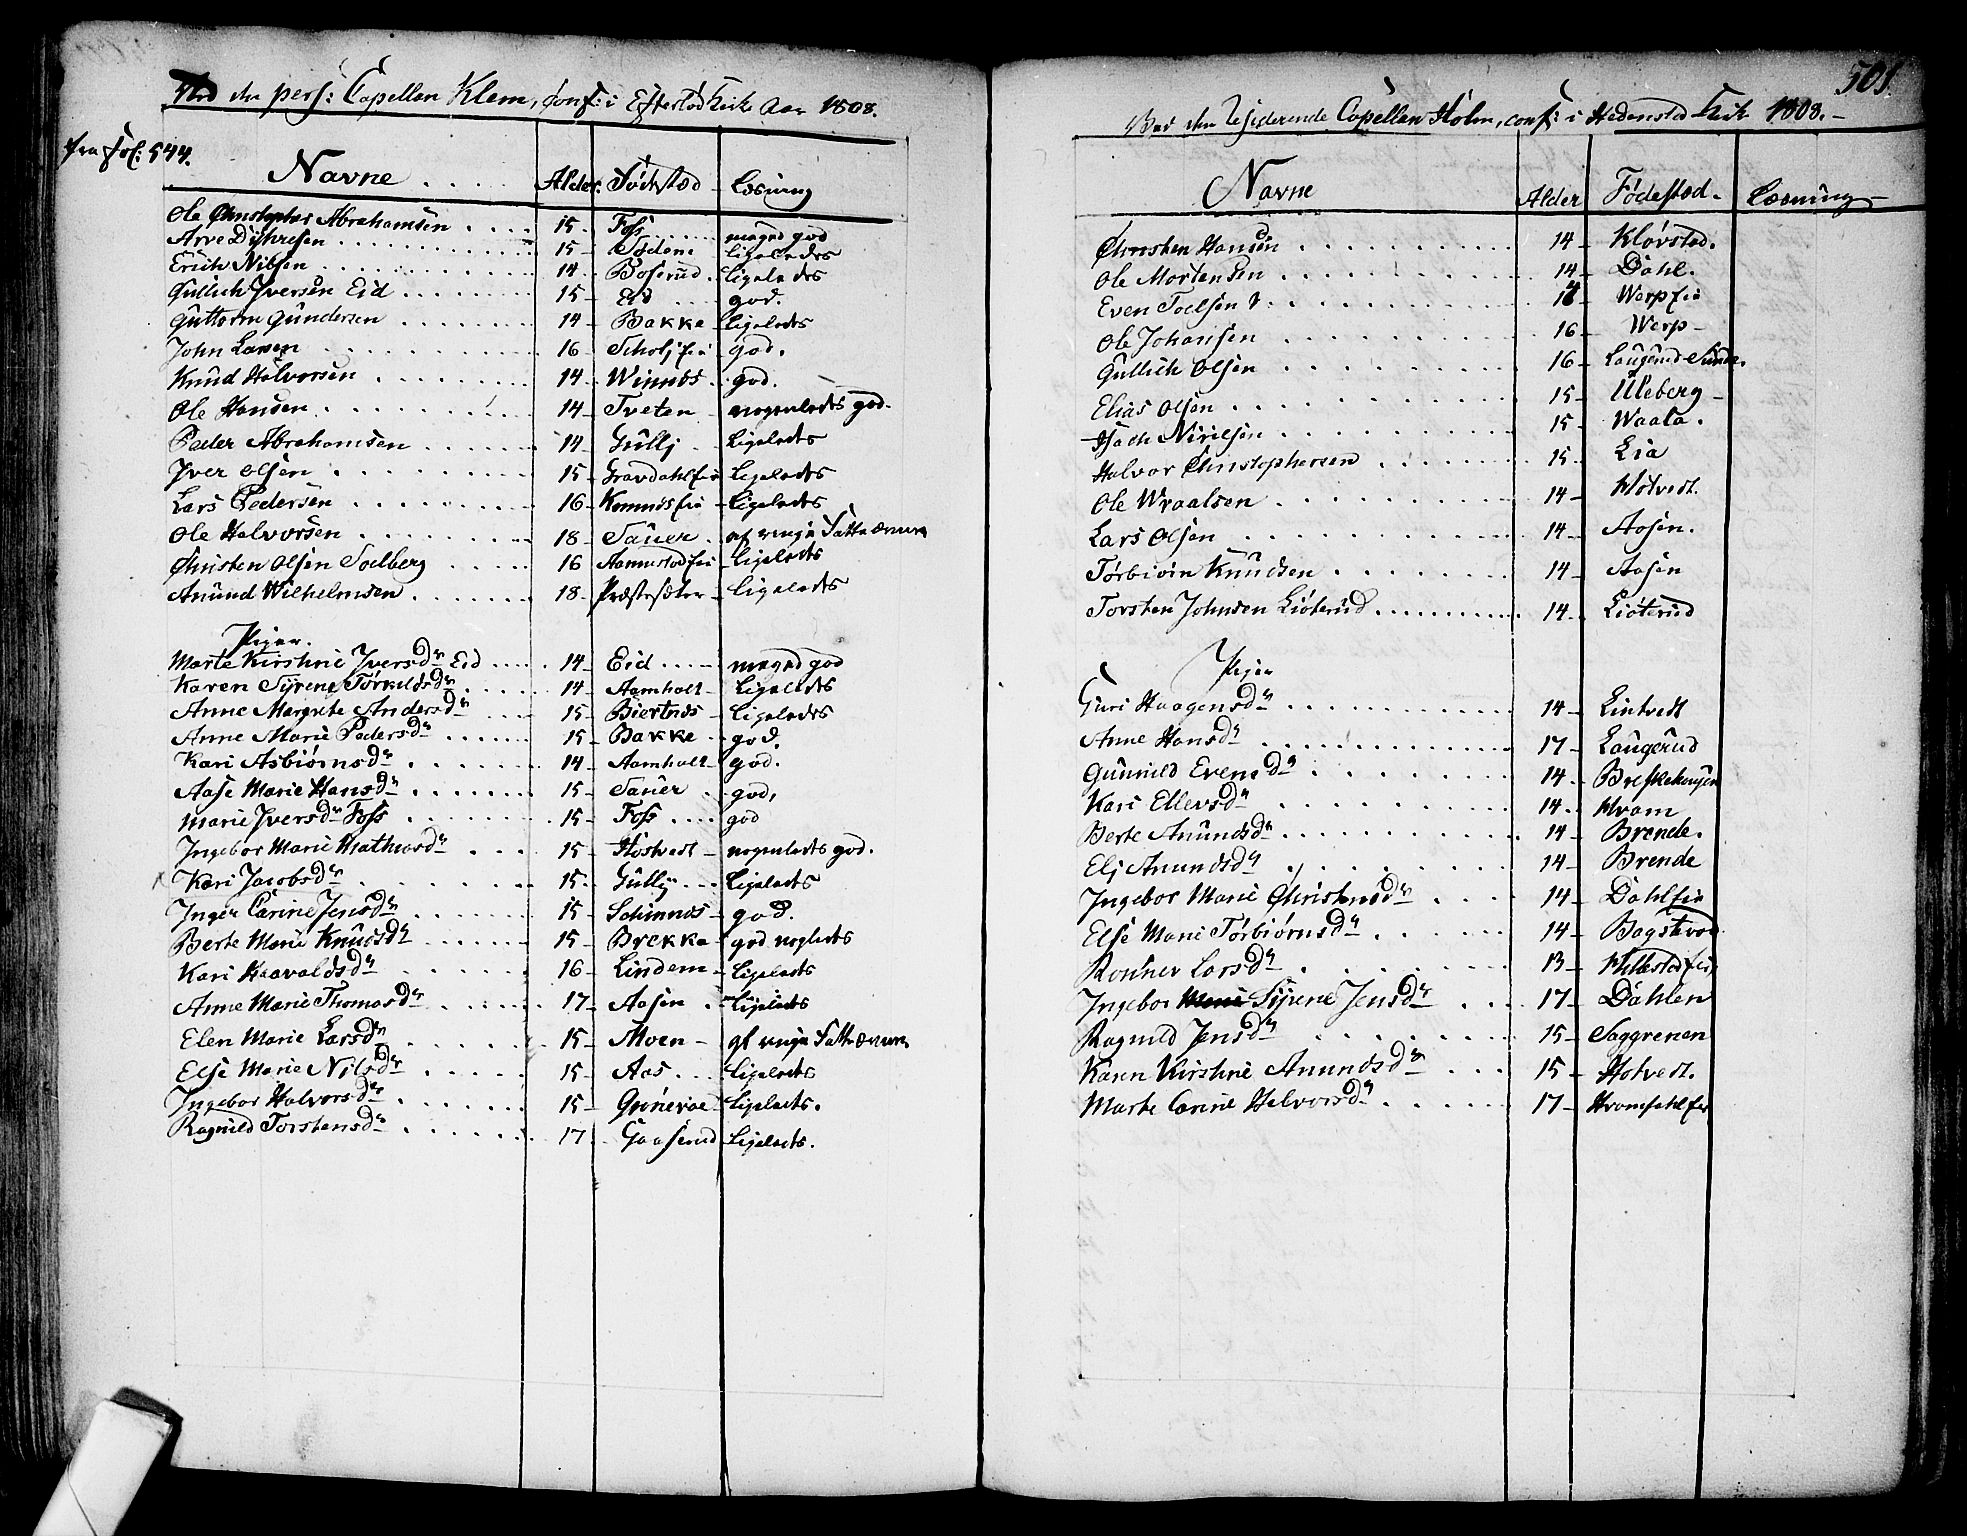 Ved den pers: Capellan Klem, conf: i Eftelød Kirke Aar 1808.
fra Fol: 544.
Navne . . . . . Alder. Födested Læsning
Ole Christopher Abrahamsen . . . . 15 Foss . . . . meged god
Arve Dishresen 15 ligeledes
Erich Nilsen 14 Boserud ligeledes
Gullich Iversen Eid 15 Eid . . . . god.
Guttorm Gundersen 14 Bakke ligeledes
John Larsen 16 god.
Knud Halvorsen 14 Winnæs god.
Ole Hansen 14 Tveten nogenledes god.
Peder Abrahamsen 14 Gullj Ligeledes
Iver Olsen 15 Gravdahlseie Ligeledes
Lars Pedersen 16 Komnæseie Ligeledes
Ole Halvorsen 18 Sauer af ringe Fatteævne
Christen Olsen Soelberg 16 Aannestadeie Ligeledes
Anund Wilhelmsen 18 Præstesæter Ligeledes
Piger.
Marte Kirstine Iversdr Eid 14 Eid . . . . meged god
Karen Syrene Torkildsdr 14 Aamholt Ligeledes
Anne Margrete Andersdr 15 Biertnæs Ligeledes
Anne Marie Pedersdr 15 Bakke god.
Kari Asbiörnsdr 14 Aamholt god.
Aase Marie Hansdr 15 Sauer god,
Marie Iversdr Foss 15 Foss . . . . god
Ingebor Marie Mathiasdr 15 Hostvedt nogenledes god.
Kari Jacobsdr 15 Gullj Ligeledes
Inger Carine Jensdr 15 Schinnæs god.
Berte Marie Knudsdr 15 Brekke god nogledes
Kari Haavaldsdr 16 Lindem Ligeledes
Anne Marie Thomasdr 17 Aasen Ligeledes
Elen Marie Larsdr 15 Moen af ringe Fatteævne
Else Marie Nilsdr 15 Aas . . . Ligeledes
Ingebor Halvorsdr 15 Grönevoe Ligeledes.
Ragnild Torstensdr 17 Gaaserud Ligeledes.
501.
Ved den residerende Capellan Holm, conf: i Hedensted Kirke 1808.
Navne Alder Födested. Læsning
Christen Hansen 14 Klövstad.
Ole Mortensen 14 Dahl.
Even Toelsen Werpseie
Ole Johansen 16 Werp
Gullich Olsen 16 Laugerud
Elias Olsen 15 Ulleberg
Isach Nirilsen 15 Waala.
Halvor Christophersen 15 Lia
Ole Wraalsen 14 Hotvedt.
Lars Olsen 14 Aasen.
Torbiörn Knudsen 14 Aasen
Torsten Johnsen Liöterud 14 Liöterud
Piger
Guri Haagensdr 14 Lintvedt
Anne Hansdr 17 Laugerud
Gunnild Evensdr 14 Breskehougen
Kari Ellevsdr 14 Hvam
Berte Anundsdr 14 Brende.
Elj Anundsdr 14 Brende
Ingebor Marie Christensdr 14 Dahlseie
Else Marie Torbiörnsdr 14 Bagstevold
Ronner Larsdr 13
Ingebor Syrene Jensdr 17 Dahlen
Ragnild Jensdr 15 Saggrenen
Karen Kirstine Anundsdr 15 Hotvedt.
Marte Carine Halvorsdr 17